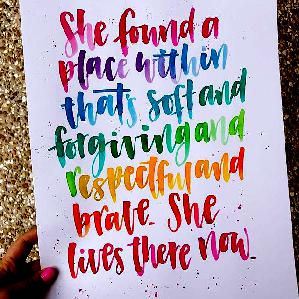 She found a
place within
that's soft and
forgiving and
respectful and
brave. She
lives there now.